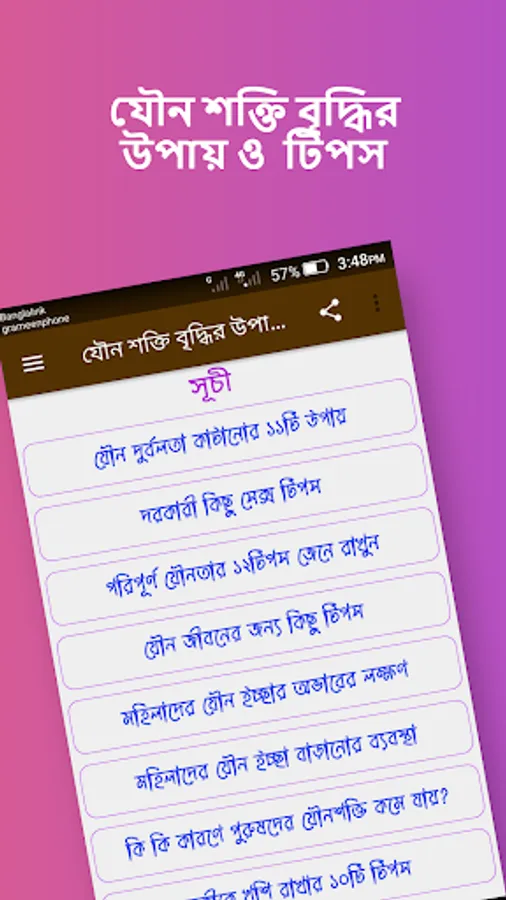 যৌন শক্তি বৃদ্ধির
উপায় ও টিপস
Banglalink
grameenphone
57%
3:48PM
যৌন শক্তি বৃদ্ধির উপা...
সূচী
যৌন দুর্বলতা কাটানোর ১১টি উপায়
দরকারী কিছু সেক্স টিপস
পরিপূর্ণ যৌনতার ১২টিপস জেনে রাখুন
যৌন জীবনের জন্য কিছু টিপস
মহিলাদের যৌন ইচ্ছার অভাবের লক্ষণ
মহিলাদের যৌন ইচ্ছা বাড়ানোর ব্যবস্থা
কি কি কারণে পুরুষদের যৌনশক্তি কমে যায়?
খুশি রাখার ১০টি টিপস